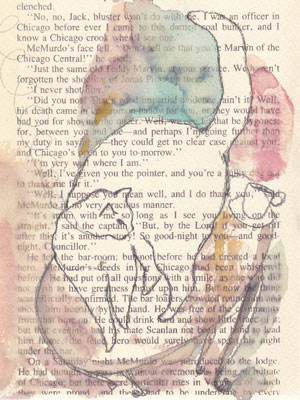 clenched.
"No, no, Jack, bluster won't do with me. I was an officer in
Chicago before ever I came to this darned coal bunker, and I
know a Chicago crook when I see one."
McMurdo's face fell. "Don't tell me that you're Marvin of the
Chicago Central!"
"Just the same old Teddy Marvin, at your service. We haven't
forgotten the shooting of Jonas Pinto up there."
"I never shot him."
"Did you not? That's good impartial evidence, ain't it? Well,
his death came in uncommon handy for you, or they would have
had you for shoving the queer. Well, we can let that be bygones;
for, between you and me—and perhaps I'm going further than
my duty in saying it—they could get no clear case against you,
and Chicago's open to you to-morrow."
"I'm very well where I am."
"Well, I've given you the pointer, and you're a sulky dog not
to thank me for it."
"Well, I suppose you mean well, and I do thank you," said
McMurdo in no very gracious manner.
"It's mum with me so long as I see you living on the
straight," said the captain. "But, by the Lord! if you get off
after this, it's another story! So good-night to you—and good-
night, Councillor."
He left the bar-room; but not before he had created a local
hero. McMurdo's deeds in far Chicago had been whispered
before. He had put off all questions with a smile, as one who did
not wish to have greatness thrust upon him. But now the thing
was officially confirmed. The bar loafers crowded round him
and shook him heartily by the hand. He was free of the
community from that time on. He could drink hard and show little trace of it;
but that evening, had his mate Scanlan not been at hand to lead
him home, the feted hero would surely have spent his night
under the bar.
On a Saturday night McMurdo was introduced to the lodge.
He had thought to pass in without ceremony as being an initiate
of Chicago; but there were particular rites in Vermissa of which
they were proud, and these had to be undergone by every